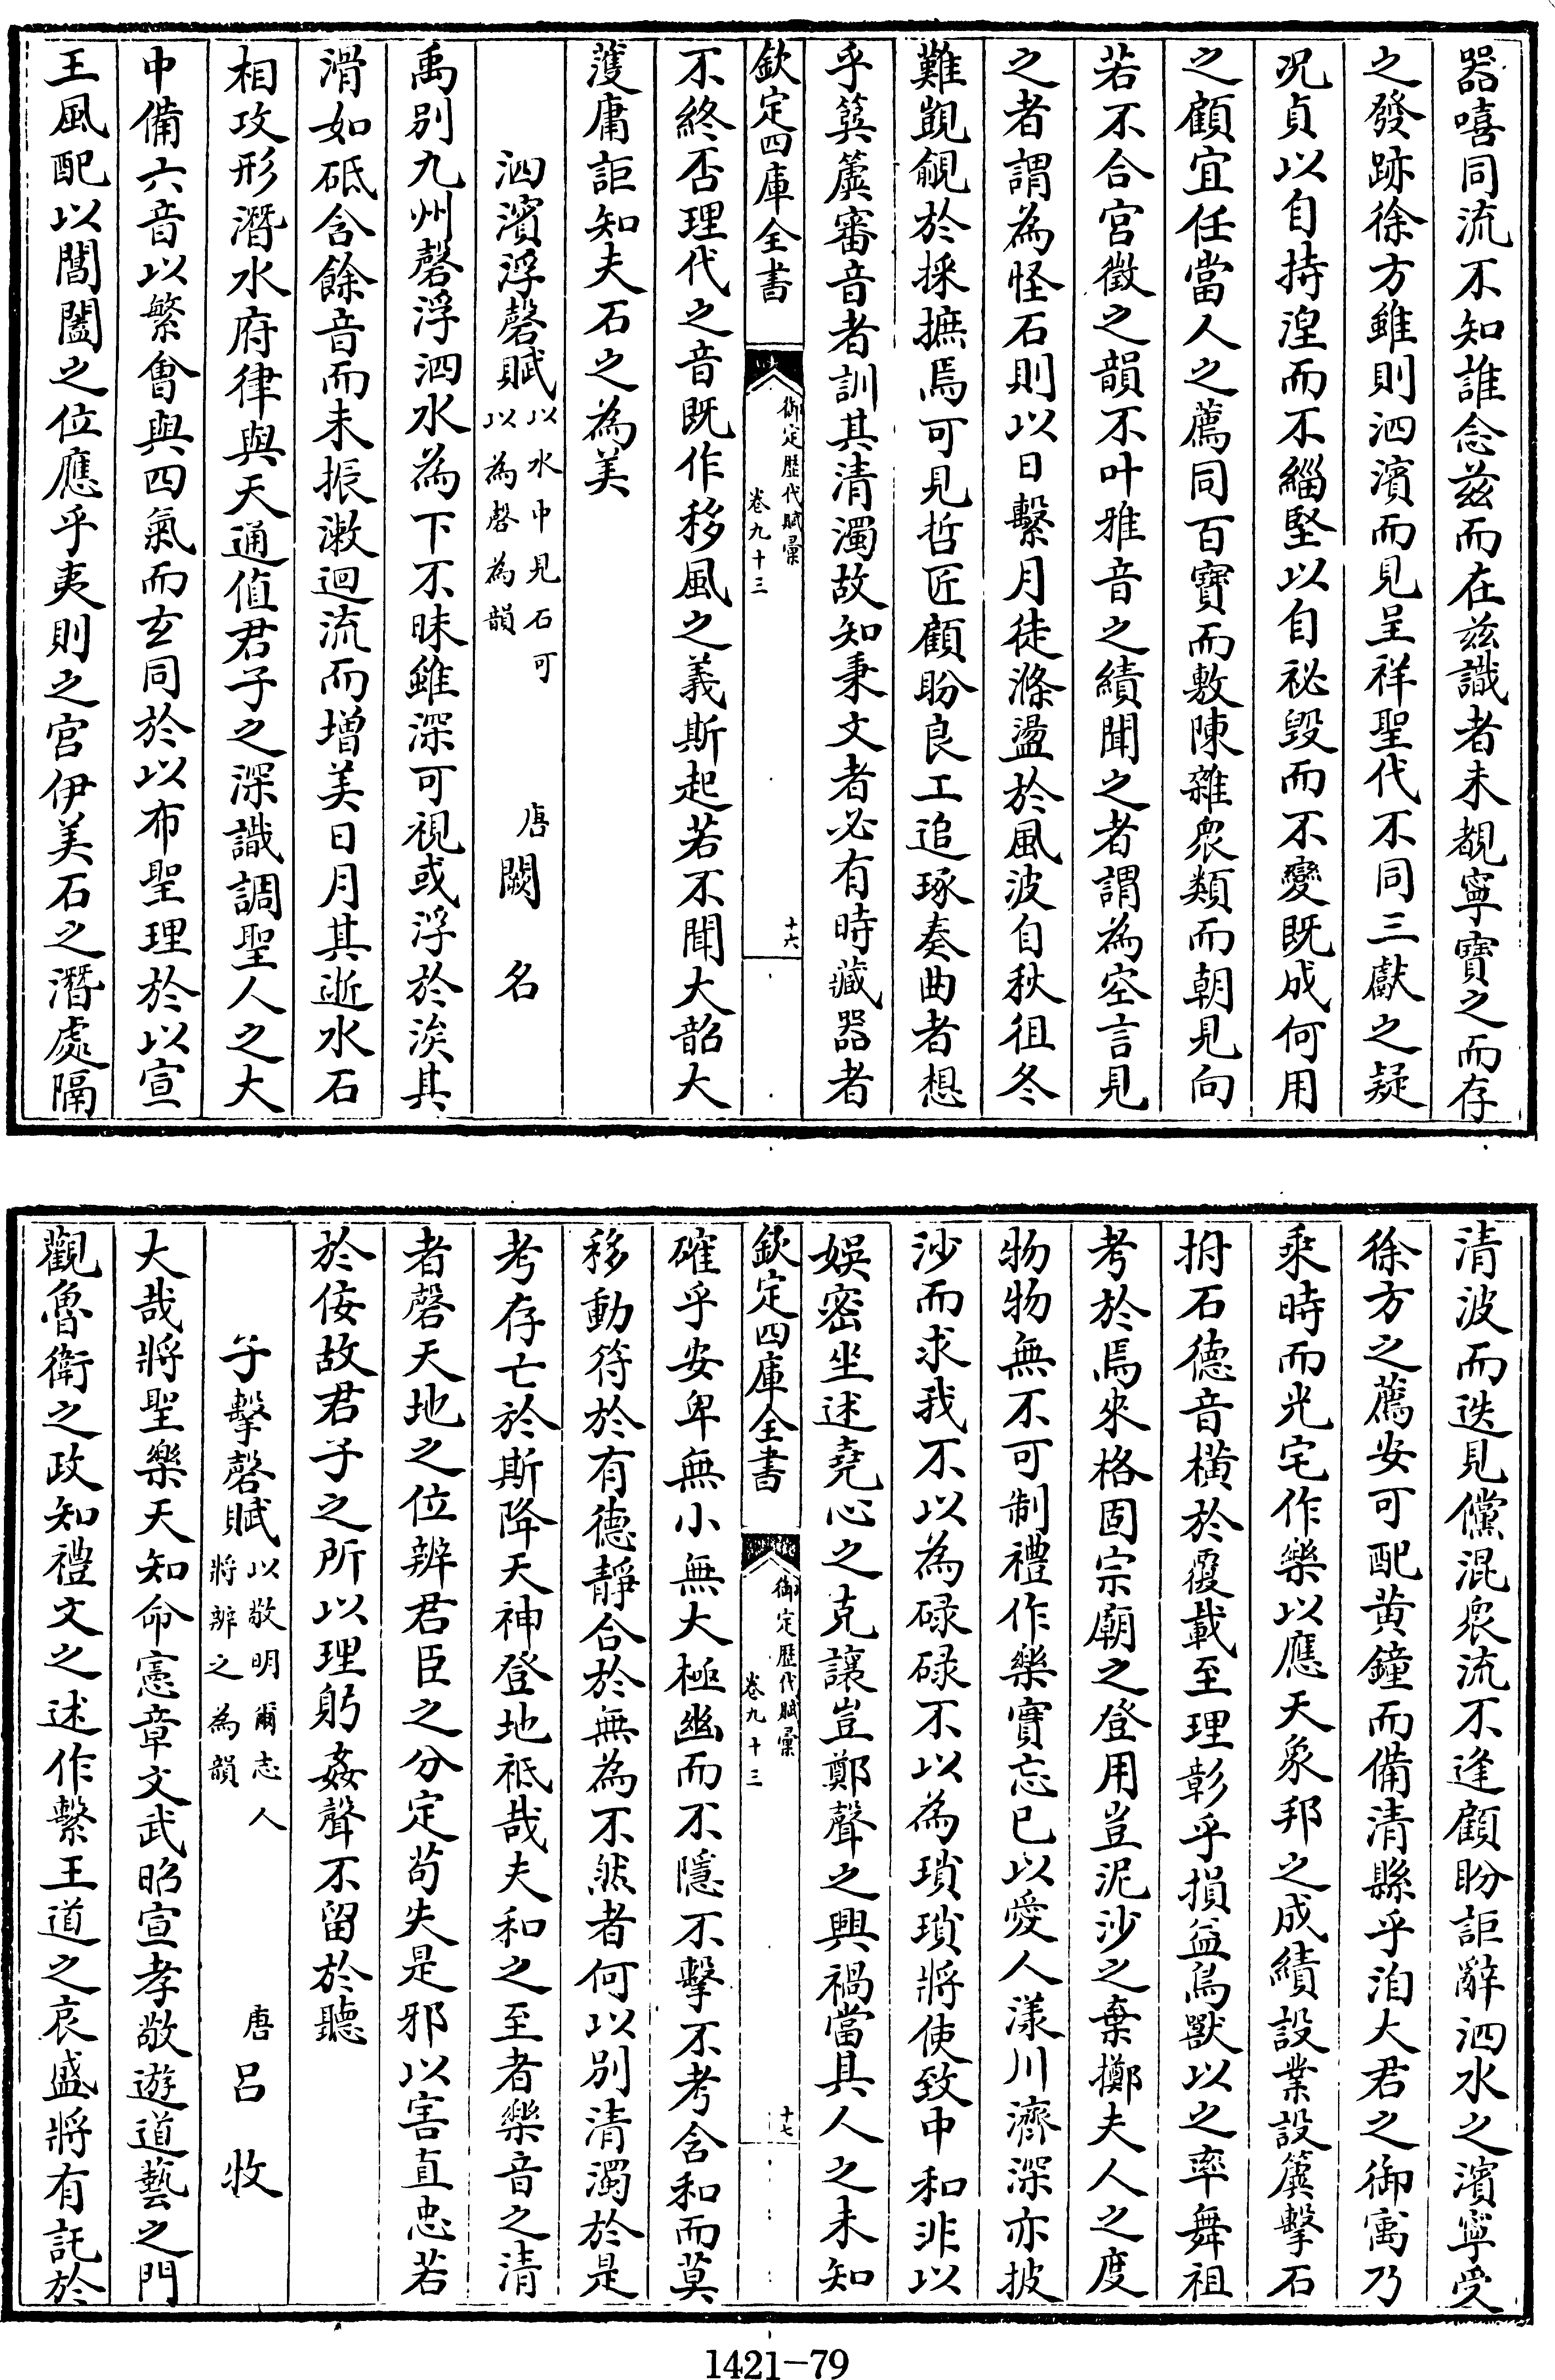 器嘻同流不知誰念兹而在兹識者未覩寧寶之而存
之發跡徐方雖則泗濱而見呈祥聖代不同三獻之疑
况貞以自持湼而不緇堅以自祕毀而不變既成何用
之顧宜任當人之薦同百寶而敷陳雜衆類而朝見向
若不合宮徵之韻不叶雅音之績聞之者謂為空言見
之者謂為怪石則以日繫月徒滌盪於風波自秋徂冬
難覬覦於採摭焉可見哲匠顧盼良工追琢奏曲者想
乎簨簴審音者訓其清濁故知秉文者必有時藏器者
欽定四庫全書
御定歷代賦彙
卷九十三
十六
不終否理代之音既作移風之義斯起若不聞大韶大
護庸詎知夫石之為美
泗濱浮磬賦 以水中見石可
以為磬為韻
唐 闕名
禹别九州磬浮泗水為下不昧雖深可視或浮於涘其
滑如砥含餘音而未振漱迴流而增美日月其逝水石
相攻形潛水府律與天通值君子之深識調聖人之大
中備六音以繁會與四氣而玄同於以布聖理於以宣
王風配以閶闔之位應乎夷則之宮伊美石之潛處隔
清波而迭見儻混衆流不逢顧盼詎辭泗水之濱寧受
徐方之薦安可配黄鐘而備清縣乎洎大君之御寓乃
乘時而光宅作樂以應天象邦之成績設業設簴擊石
拊石德音橫於覆載至理彰乎損益鳥獸以之率舞祖
考於焉來格固宗廟之登用豈泥沙之棄擲夫人之度
物物無不可制禮作樂實忘已以愛人漾川濟深亦披
沙而求我不以為碌碌不以為瑣瑣將使致中和非以
娛密坐述堯心之克讓豈鄭聲之興禍當具人之未知
欽定四庫全書
御定歷代賦彙
卷九十三
十七
確乎安卑無小無大極幽而不隱不擊不考含和而莫
移動符於有德靜合於無為不然者何以别清濁於是
考存亡於斯降天神登地祇哉夫和之至者樂音之清
者磬天地之位辨君臣之分定苟失是邪以害直忠若
於佞故君子之所以理躬姦聲不留於聽
子擊磬賦 以敬明爾志人
將辨之為韻
唐 呂牧
大哉將聖樂天知命憲章文武昭宣孝敬遊道藝之門
觀魯衛之政知禮文之述作繫王道之哀盛將有託於
1421-79